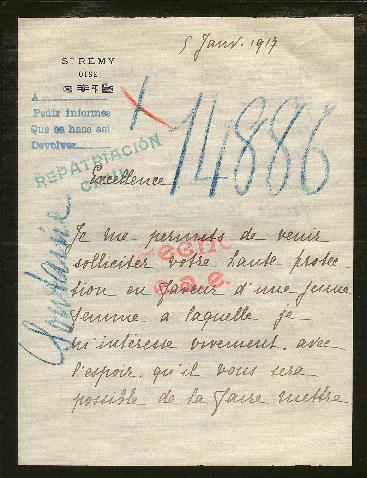 5 Janv. 1917
ST REMY
OISE
A
Pedir informes
Que se hace así
Devolver
14886
REPATRIACIÓN
Excellence
Je me permets de venir
solliciter votre haute protec-
tion en faveur d'une jeune
femme à laquelle je
m'intéresse vivement, avec
l'espoir qu'il vous sera
possible de la faire mettre